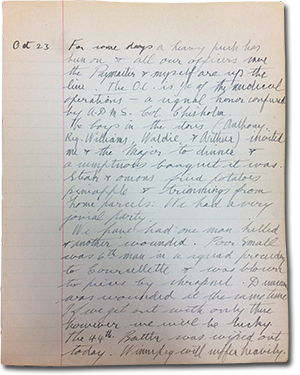 Oct 23 For some days a heavy push has
been on & all our officers save
the Paymaster & myself are up the
line. The O.C. is i/c of the medical
operations – a signal honor conferred
by A.D.M.S. Col Chisholm.
The boys in the stores (Anthony,
Reg. Williams, Waldie & Arthur) invited
me & the Major to dinner &
a sumptuous banquet it was.
Steak & onions fried potatoes
pineapple & trimmings from
home parcels. We had a very
jovial party.
We have had one man killed
& another wounded. Poor Small
was 6th man in a squad proceeding
to Courcellette & was blown
to pieces by shrapnel. Duncan
was wounded at the same time
If we get out with only this
however we will be lucky.
The 44th Battn was wiped out
today. Winnipeg will suffer heavily.